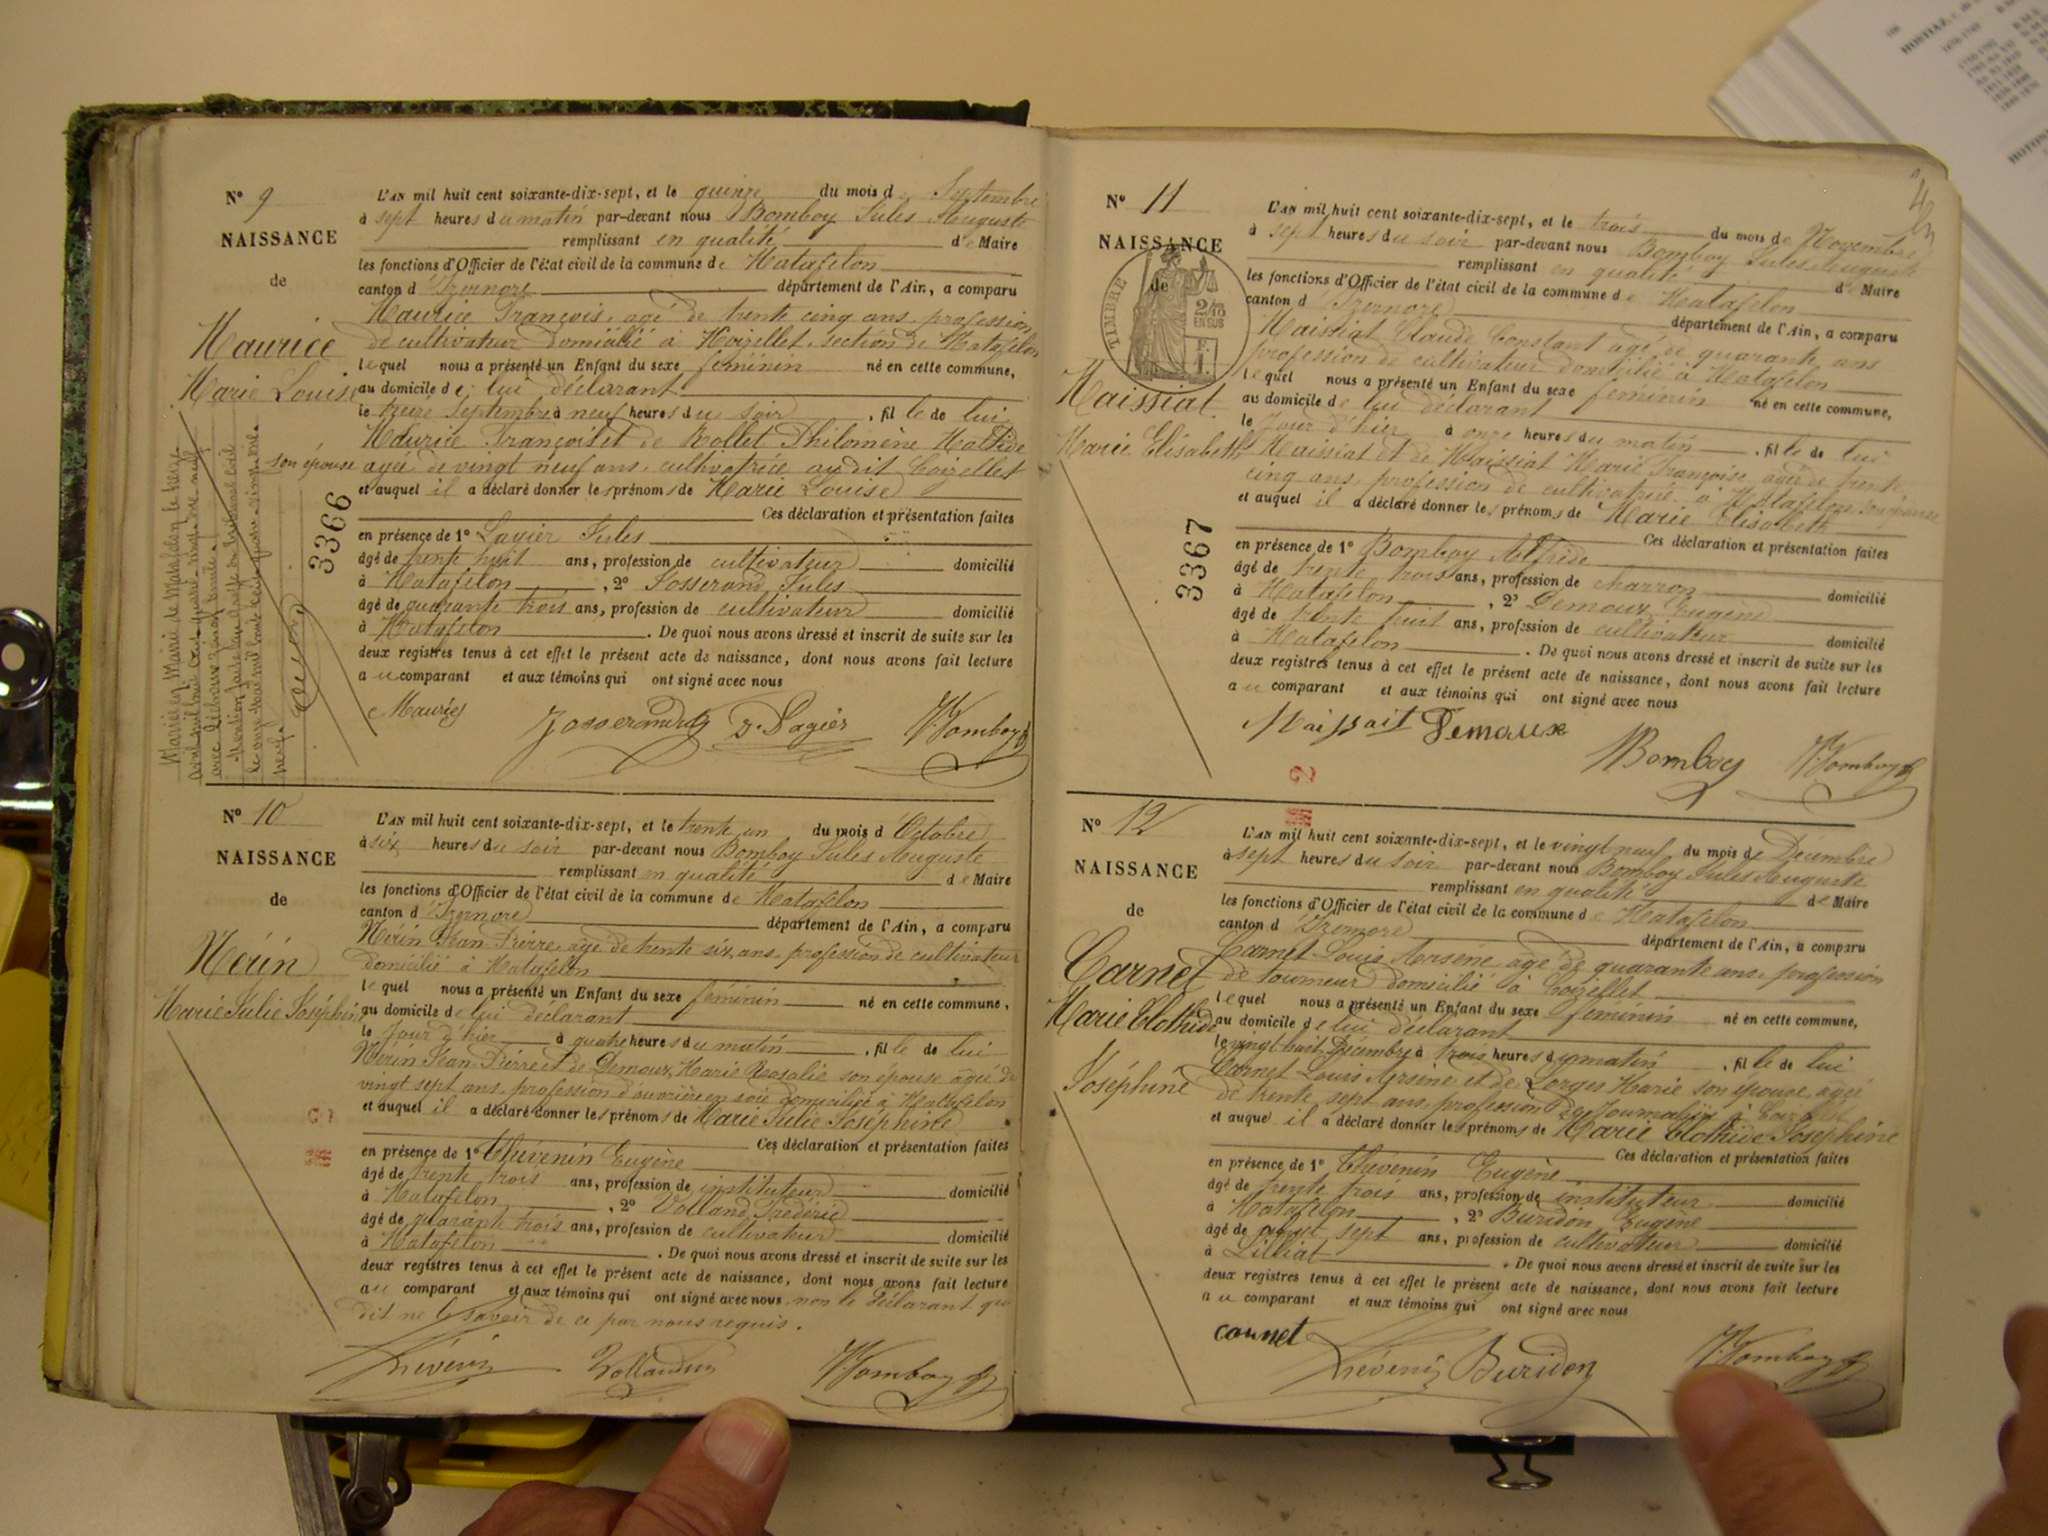 N° 9
NAISSANCE
de
Maurice
Marie Louise
L'AN mil huit cent soixante-dix-sept, et le quinze du mois de Septembre
à sept heures du matin par-devant nous Bomboy Jules Auguste
remplissant en qualité de Maire
les fonctions d'Officier de l'état civil de la commune de Matafelon
canton d'Izernore département de l'Ain, a comparu
Maurice François, agé de trente cinq ans, profession
de cultivateur domicilié à Coizellet, section de Matafelon
lequel nous a présenté un Enfant du sexe féminin né en cette commune,
au domicile de lui déclarant
le treize Septembre à neuf heures du soir, fille de lui
Maurice François et de Rollet Philomène Mathide
son épouse agée de vingt neuf ans, cultivatrice audit Coizellet
et auquel il a déclaré donner les prénoms de Marie Louise
Ces déclaration et présentation faites
en présence de 1° Lagier Jules
âgé de trente huit ans, profession de cultivateur domicilié
à Matafelon, 2° Josserand Jules
âgé de quarante trois ans, profession de cultivateur domicilié
à Matafelon. De quoi nous avons dressé et inscrit de suite sur les
deux registres tenus à cet effet le présent acte de naissance, dont nous avons fait lecture
au comparant et aux témoins qui ont signé avec nous
Maurice Josserand J. Lagier Bomboy
3366
N° 10
NAISSANCE
de
Nérin
Marie Julie Joséphine
L'AN mil huit cent soixante-dix-sept, et le trente un du mois d'Octobre
à six heures du soir par-devant nous Bomboy Jules Auguste
remplissant en qualité de Maire
les fonctions d'Officier de l'état civil de la commune de Matafelon
canton d'Izernore département de l'Ain, a comparu
Nérin Jean Pierre, agé de trente six ans, profession de cultivateur
domicilié à Matafelon
lequel nous a présenté un Enfant du sexe féminin né en cette commune,
au domicile de lui déclarant
le Jour d'hier à quatre heures du matin, fille de lui
Nérin Jean Pierre et de Demoux Marie Rosalie son épouse agée de
vingt sept ans, profession d'ouvrière en soie domiciliée à Matafelon
et auquel il a déclaré donner les prénoms de Marie Julie Joséphine
Ces déclaration et présentation faites
en présence de 1° Thévenin Eugène
âgé de trente trois ans, profession de instituteur domicilié
à Matafelon, 2° Volland Frédéric
âgé de quarante trois ans, profession de cultivateur domicilié
à Matafelon. De quoi nous avons dressé et inscrit de suite sur les
deux registres tenus à cet effet le présent acte de naissance, dont nous avons fait lecture
au comparant et aux témoins qui ont signé avec nous, non le déclarant qui
dit ne le savoir de ce par nous requis.
Thévenin Volland Bomboy
N° 11
NAISSANCE
de
TIMBRE
2/10
EN SUS
Maissiat
Marie Elisabeth
L'AN mil huit cent soixante-dix-sept, et le trois du mois de Novembre
à sept heures du soir par-devant nous Bomboy Jules Auguste
remplissant en qualité de Maire
les fonctions d'Officier de l'état civil de la commune de Matafelon
canton d'Izernore département de l'Ain, a comparu
Maissiat Claude Constant agé de quarante ans
profession de cultivateur domicilié à Matafelon
lequel nous a présenté un Enfant du sexe féminin né en cette commune,
au domicile de lui déclarant
le Jour d'hier à onze heures du matin, fille de lui
Maissiat et de Maissiat Marie Françoise, agée de trente
cinq ans, profession de cultivatrice à Matafelon, son épouse
et auquel il a déclaré donner les prénoms de Marie Elisabeth
Ces déclaration et présentation faites
en présence de 1° Bomboy Alfrède
âgé de trente trois ans, profession de charron domicilié
à Matafelon, 2° Demoux Eugène
âgé de trente huit ans, profession de cultivateur domicilié
à Matafelon. De quoi nous avons dressé et inscrit de suite sur les
deux registres tenus à cet effet le présent acte de naissance, dont nous avons fait lecture
au comparant et aux témoins qui ont signé avec nous
Maissait Demoux
Bomboy Bomboy
3367
2
N° 12
NAISSANCE
de
Carnet
Marie Clothide
Joséphine
L'AN mil huit cent soixante-dix-sept, et le vingt neuf du mois de Décembre
à sept heures du soir par-devant nous Bomboy Jules Auguste
remplissant en qualité de Maire
les fonctions d'Officier de l'état civil de la commune de Matafelon
canton d'Izernore département de l'Ain, a comparu
Carnet Louis Arsène agé de quarante ans, profession
de tourneur domicilié à Coizellet
lequel nous a présenté un Enfant du sexe féminin né en cette commune,
au domicile de lui déclarant
le vingt huit Décembre à trois heures du matin, fille de lui
Carnet Louis Arsène et de Lorges Marie son épouse, agée
de trente sept ans, profession de Journalière à Coizellet
et auquel il a déclaré donner les prénoms de Marie Clothide Joséphine
Ces déclaration et présentation faites
en présence de 1° Thévenin Eugène
âgé de trente trois ans, profession de instituteur domicilié
à Matafelon, 2° Buridon Eugène
âgé de vingt sept ans, profession de cultivateur domicilié
à Lilliat. De quoi nous avons dressé et inscrit de suite sur les
deux registres tenus à cet effet le présent acte de naissance, dont nous avons fait lecture
au comparant et aux témoins qui ont signé avec nous
carnet Thévenin Buridon Bomboy